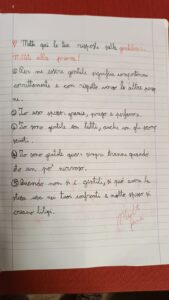 ① Metti qui le tue risposte sulla gentilezza.
Mettiti alla prova!
① Per me essere gentile significa comportarsi
correttamente e con rispetto verso le altre perso
ne.
② Io uso spesso grazie, prego e per favore.
③ Io sono gentile con tutti, anche con gli scono
sciuti.
④ Io sono gentile quasi sempre tranne quando
sono un po' nervoso.
⑤ Quando non si è gentili, si può avere la
stessa cosa nei tuoi confronti e molto spesso si
creano litigi.